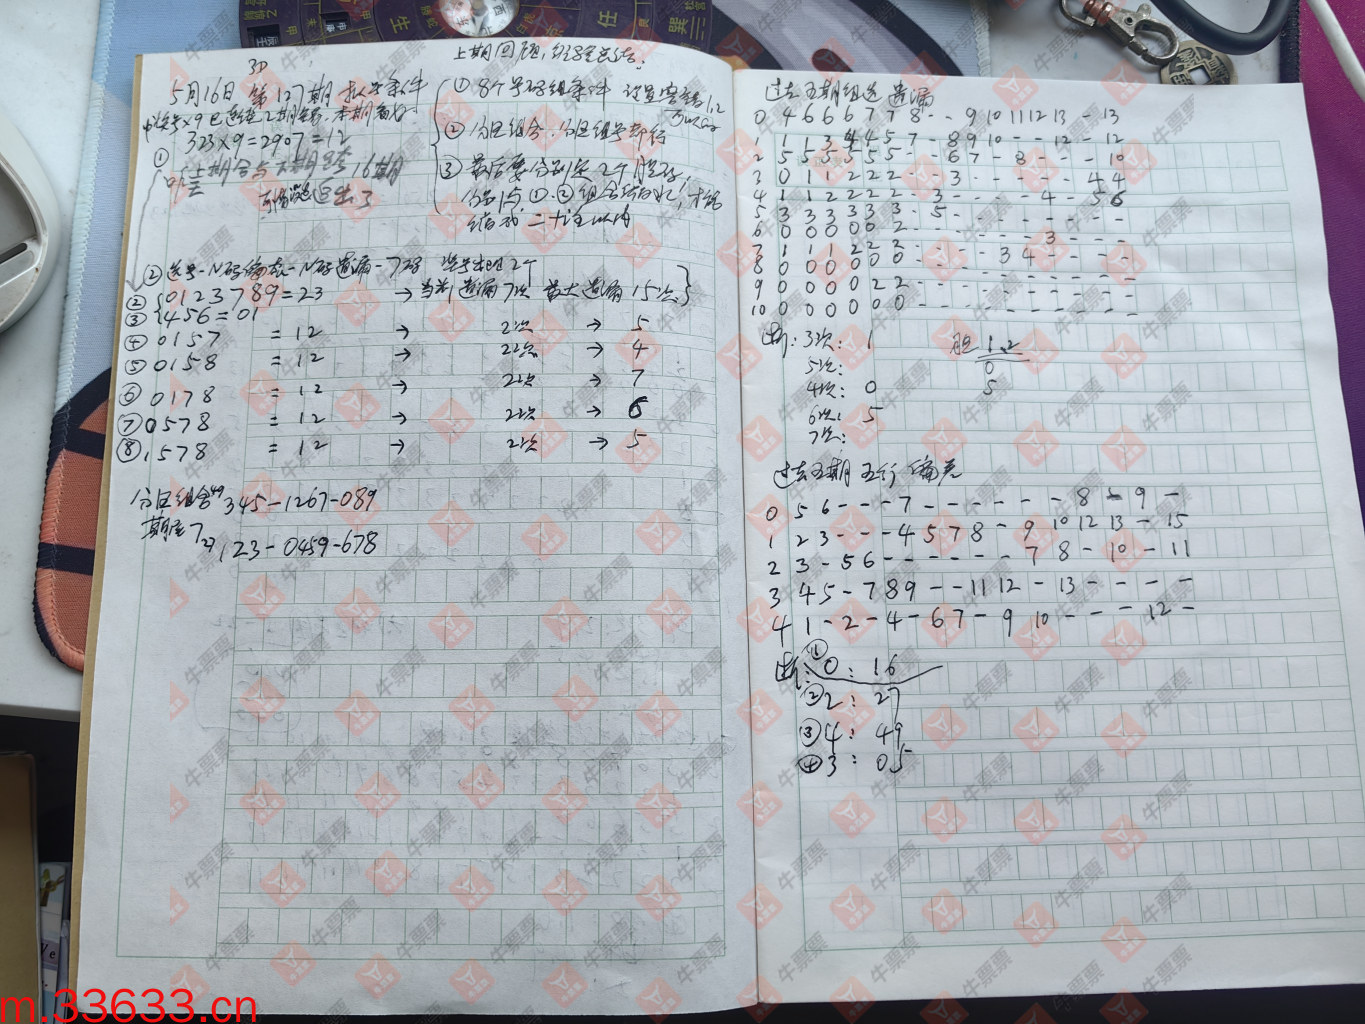 上期回顾,经验总结:
3D
5月16日 第127期 拟定条件
323×9=2907=12
①
① 8个号码组条件 设置容错1.2
② 分区组合.分区组号都行
③ 最后要分别定2个胆码,
分别与①.②组合缩水!才能
缩成二十注以内
16期
② 选号-N码偏态-N码遗漏-7码 选号出现2个
② {0123789=23 → 当前遗漏7次 最大遗漏15次}
③ {456=01
④ 0157 =12 → 2次 → 5
⑤ 0158 =12 → 2次 → 4
⑥ 0178 =12 → 2次 → 7
⑦ 0578 =12 → 2次 → 6
⑧ 1578 =12 → 2次 → 5
分区组合49 345-1267-089
期距7 27 123-0459-678
过去五期组选遗漏
0 4 6 6 6 7 7 8 - - 9 10 11 12 13 - 13
1 1 1 3 4 4 5 7 - 8 9 10 - - 12 - 12
2 5 5 5 5 5 5 - - 6 7 - 8 - - - 10
3 0 1 1 2 2 2 - - 3 - - - - - 4 4
4 1 1 2 2 2 2 - 3 - - - - 4 - 5 6
5 3 3 3 3 3 3 - 5 - - - - - - - -
6 0 0 0 0 0 2 - - - - - 3 - - -
7 1 1 1 2 2 2 - - - - 3 4 - - - -
8 0 0 0 0 0 0 - - - - - - - - -
9 0 0 0 0 2 2 - - - - - - - - -
10 0 0 0 0 0 0 - - - - - - - - -
断:3次: 1
5次:
4次: 0
6次: 5
7次:
胆 1.2
0
5
过去五期 五行 偏态
0 5 6 - - - 7 - - - - - - 8 - 9 -
1 2 3 - - - 4 5 7 8 - 9 10 12 13 - 15
2 3 - 5 6 - - - - - - 7 8 - 10 - 11
3 4 5 - 7 8 9 - - 11 12 - 13 - - - -
4 1 - 2 - 4 - 6 7 - 9 10 - - - 12 -
断:①0: 16
②2: 27
③4: 49
④3: 05
牛票票
m.33633.cn